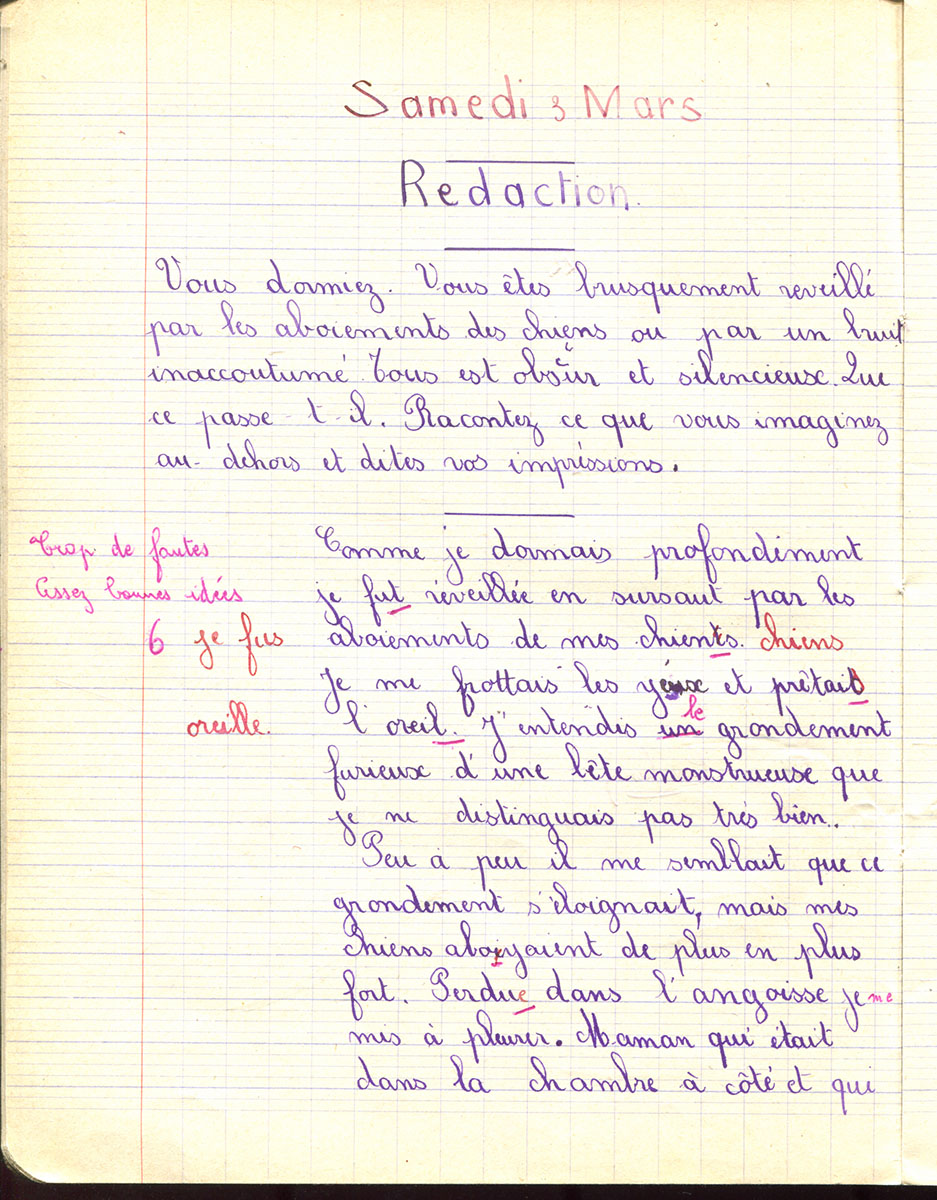 Samedi 3 Mars
Redaction.
Vous dormiez. Vous êtes brusquement reveillé
par les aboiements des chiens ou par un bruit
inaccoutumé. Tous est obscur et silencieuse. Que
ce passe-t-il. Racontez ce que vous imaginez
au-dehors et dites vos impréssions.
Trop de fautes
Assez bonnes idées
6 je fus
oreille.
Comme je dormais profondément
je fut réveillée en sursaut par les
aboiements de mes chients. chiens
Je me frottais les yeux et prêtais
l'oreil. J'entendis un le grondement
furieux d'une bête monstrueuse que
je ne distinguais pas très bien.
Peu à peu il me semblait que ce
grondement s'éloignait, mais mes
chiens aboyaient de plus en plus
fort. Perdue dans l'angoisse je me
mis à pleurer. Maman qui était
dans la chambre à côté et qui